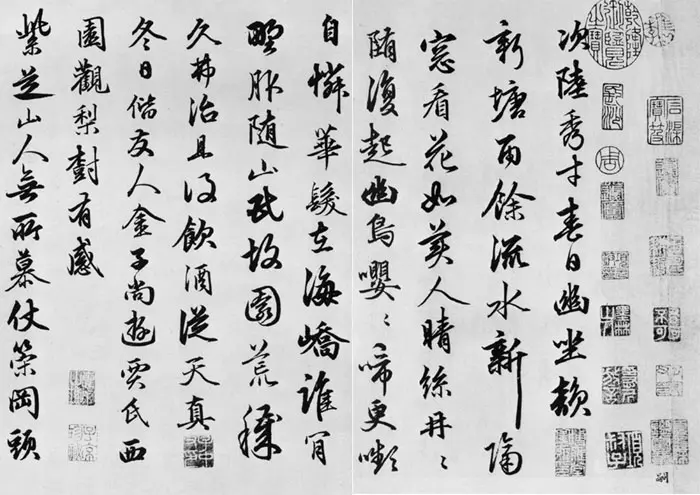 次陸秀才春日幽坐韻
新塘雨餘流水新隔
窓看花如美人晴絲冉〻
墮復起幽鳥嚶〻啼更嚬
自憐華髮在海嶠誰肯
野服随山民故園荒穢
久弗治且須飲酒從天真
冬日偕友人金子尚遊賈氏西
園觀梨樹有感
紫芝山人無所慕仗策岡頭